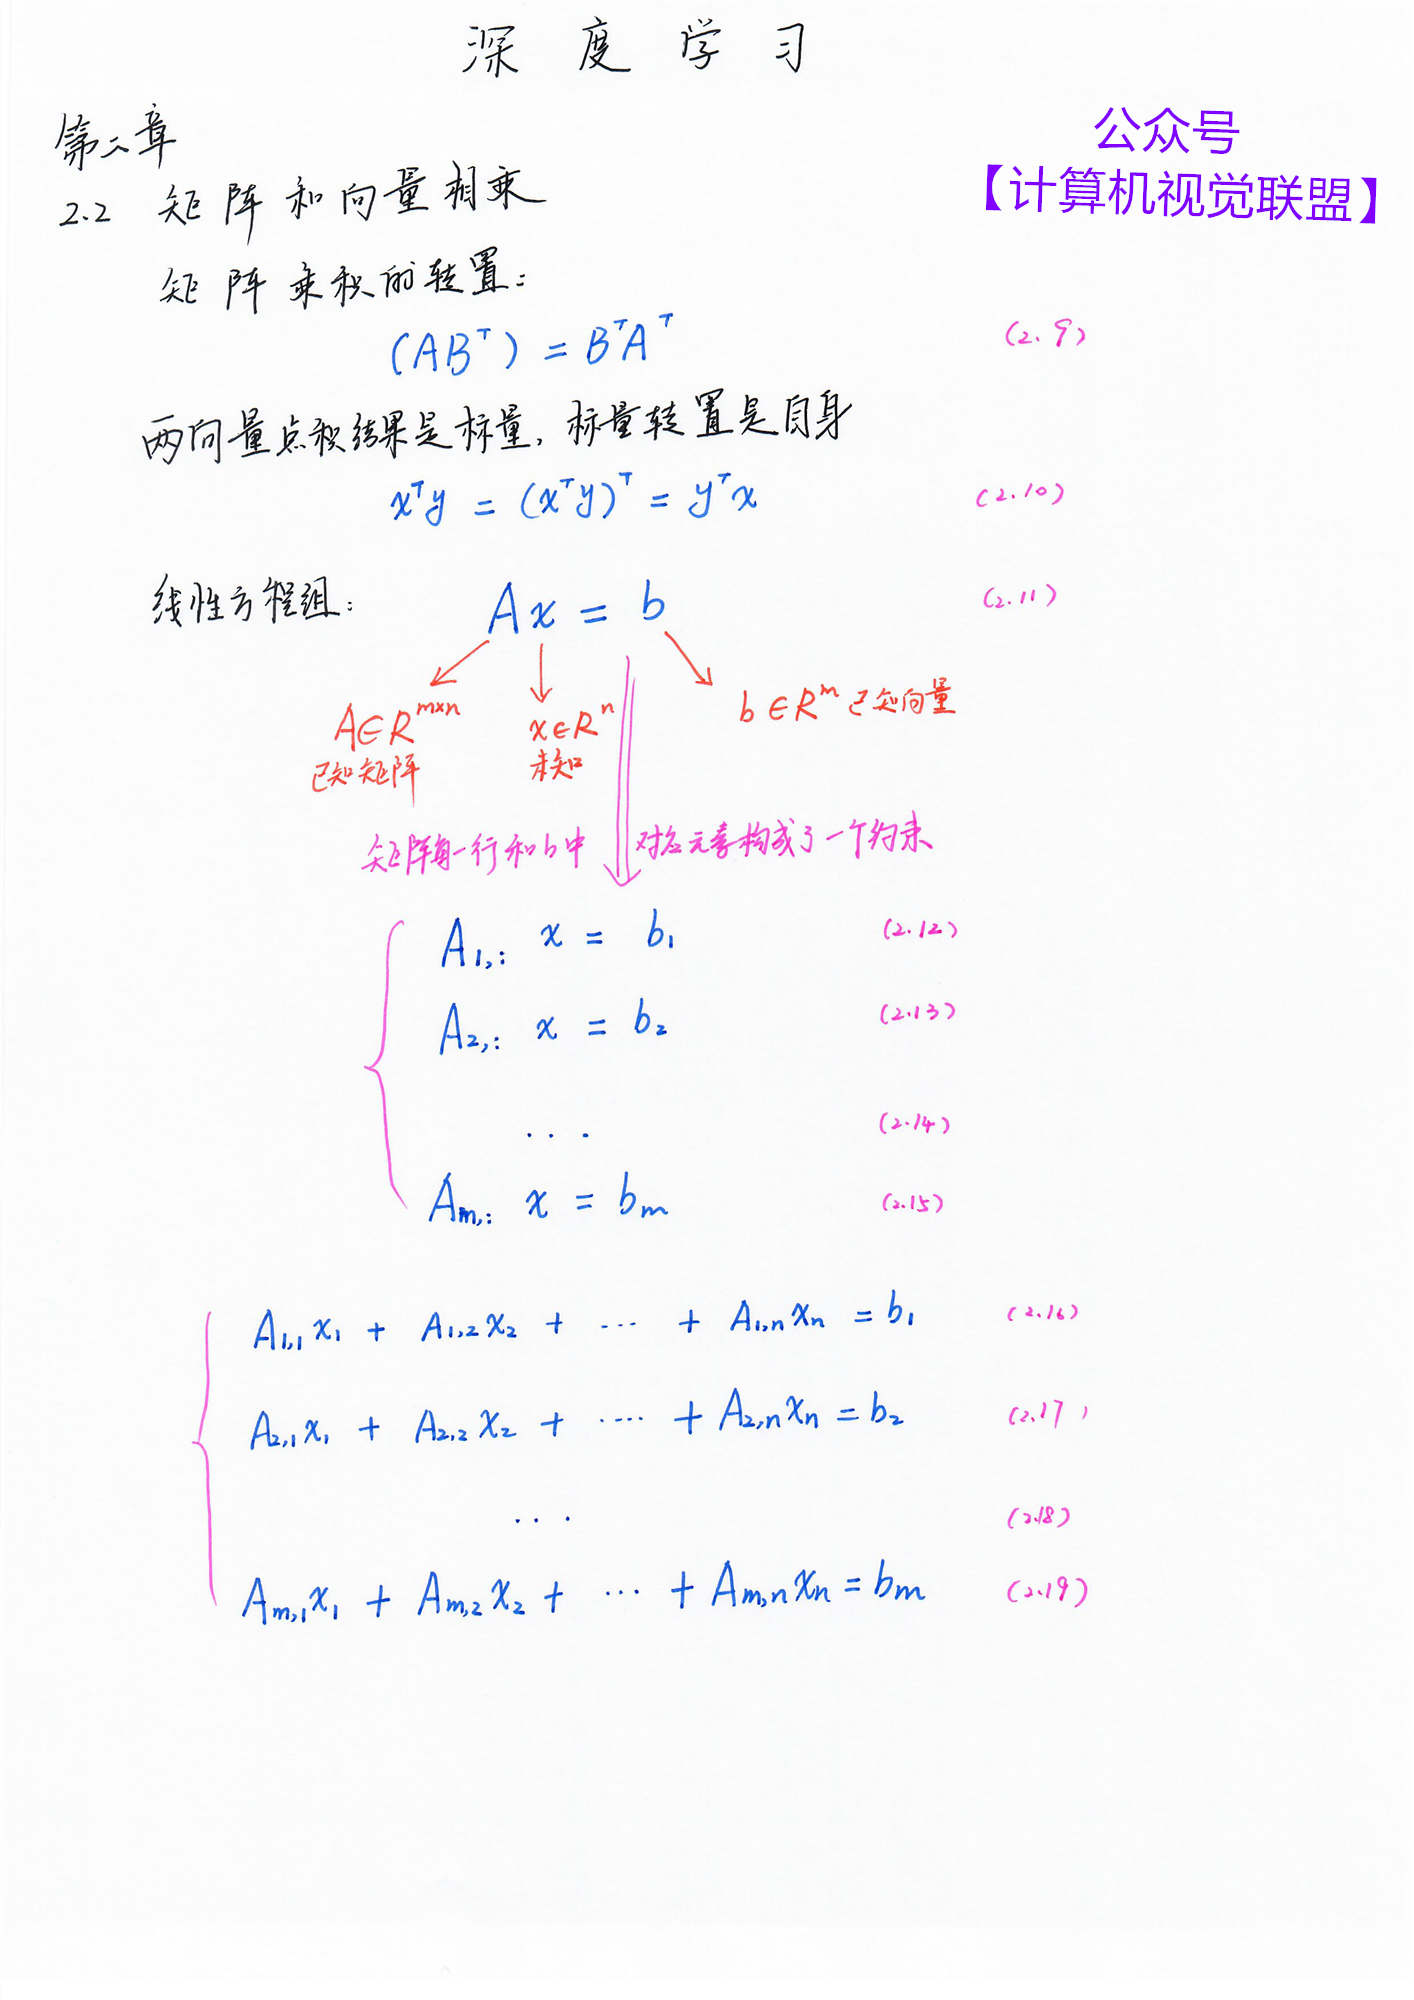 深度学习
公众号
【计算机视觉联盟】
第二章
2.2 矩阵和向量相乘
矩阵乘积的转置:
(ABᵀ) = BᵀAᵀ (2.9)
两向量点积结果是标量, 标量转置是自身
xᵀy = (xᵀy)ᵀ = yᵀx (2.10)
线性方程组: Ax = b (2.11)
A∈Rᵐˣⁿ x∈Rⁿ b∈Rᵐ 已知向量
已知矩阵 未知
矩阵每一行和b中 对应元素构成了一个约束
A₁,: x = b₁ (2.12)
A₂,: x = b₂ (2.13)
... (2.14)
Aₘ,: x = bₘ (2.15)
A₁,₁x₁ + A₁,₂x₂ + ... + A₁,ₙxₙ = b₁ (2.16)
A₂,₁x₁ + A₂,₂x₂ + .... + A₂,ₙxₙ = b₂ (2.17)
... (2.18)
Aₘ,₁x₁ + Aₘ,₂x₂ + ... + Aₘ,ₙxₙ = bₘ (2.19)